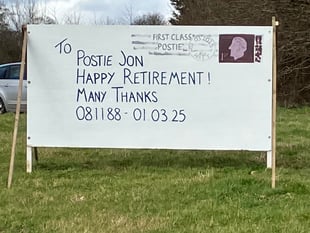 FIRST CLASS
POSTIE
To
POSTIE JON
HAPPY RETIREMENT!
MANY THANKS
081188-01.03.25